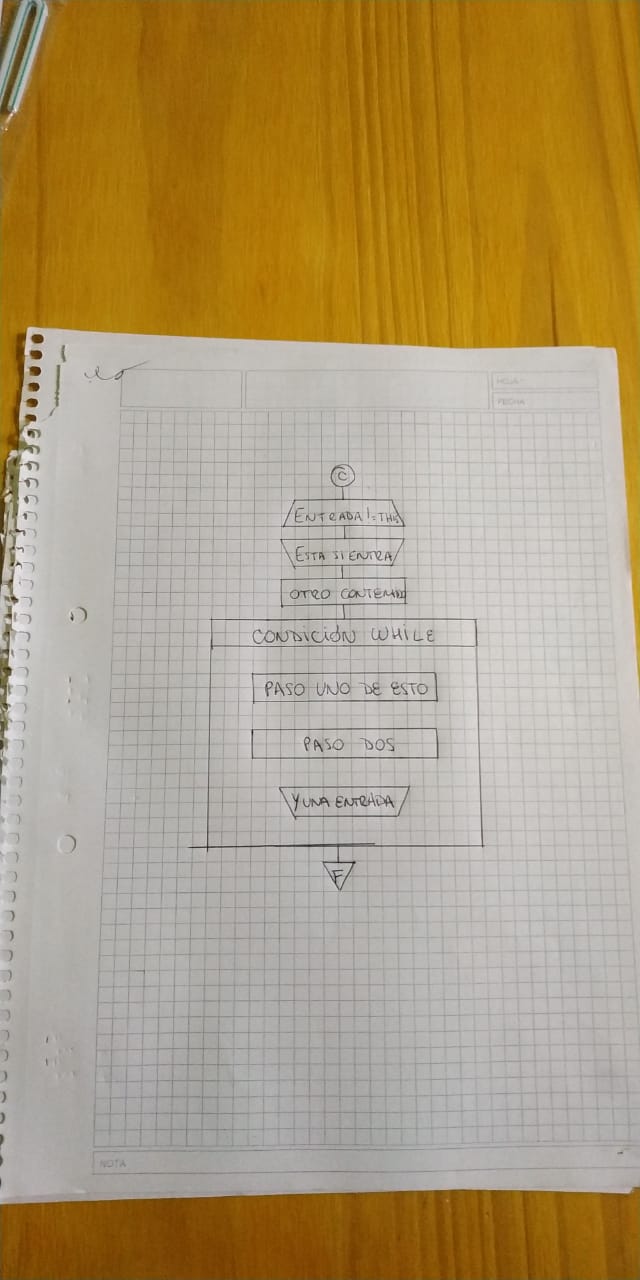 HOJA
FECHA
C
ENTRADA != THIS
ESTA SI ENTRA
OTRO CONTENIDO
CONDICIÓN WHILE
PASO UNO DE ESTO
PASO DOS
Y UNA ENTRADA
F
NOTA